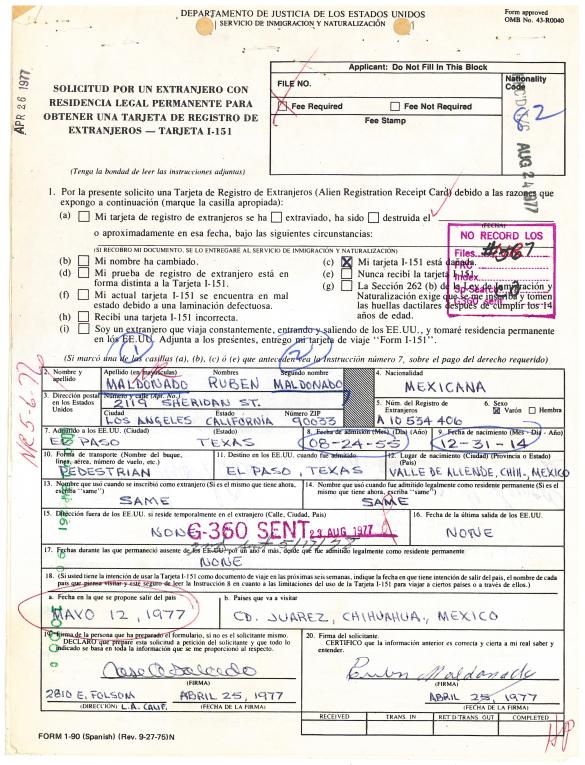 DEPARTAMENTO DE JUSTICIA DE LOS ESTADOS UNIDOS
SERVICIO DE INMIGRACION Y NATURALIZACIÓN
Form approved
OMB No. 43-R0040
APR 26 1977
SOLICITUD POR UN EXTRANJERO CON
RESIDENCIA LEGAL PERMANENTE PARA
OBTENER UNA TARJETA DE REGISTRO DE
EXTRANJEROS — TARJETA I-151
(Tenga la bondad de leer las instrucciones adjuntas)
Applicant: Do Not Fill In This Block
FILE NO.
Nationality
Code
82
Fee Required
Fee Not Required
Fee Stamp
AUG 24 1977
1. Por la presente solicito una Tarjeta de Registro de Extranjeros (Alien Registration Receipt Card) debido a las razones que
expongo a continuación (marque la casilla apropiada):
(a) Mi tarjeta de registro de extranjeros se ha extraviado, ha sido destruida el
(FECHA)
o aproximadamente en esa fecha, bajo las siguientes circunstancias:
(SI RECOBRO MI DOCUMENTO, SE LO ENTREGARE AL SERVICIO DE INMIGRACIÓN Y NATURALIZACIÓN)
(b) Mi nombre ha cambiado.
(c) Mi tarjeta I-151 está dañada.
(d) Mi prueba de registro de extranjero está en
forma distinta a la Tarjeta I-151.
(e) Nunca recibí la tarjeta I-151.
(f) Mi actual tarjeta I-151 se encuentra en mal
estado debido a una laminación defectuosa.
(g) La Sección 262 (b) de la Ley de Inmigración y
Naturalización exige que se me inscriba y tomen
las huellas dactilares después de cumplir los 14
años de edad.
(h) Recibí una tarjeta I-151 incorrecta.
(i) Soy un extranjero que viaja constantemente, entrando y saliendo de los EE.UU., y tomaré residencia permanente
en los EE.UU. Adjunta a los presentes, entrego mi tarjeta de viaje "Form I-151".
NO RECORD LOS
Files
Index
Sp-Search
G-360 sent
(Si marcó una de las casillas (a), (b), (c) ó (e) que anteceden vea la Instrucción número 7, sobre el pago del derecho requerido)
1
2
NR 5-6-77
2. Nombre y
apellido
Apellido (en mayúsculas) Nombres Segundo nombre
MALDONADO RUBEN MALDONADO
4. Nacionalidad
MEXICANA
3. Dirección postal
en los Estados
Unidos
Número y calle (Apt. No.)
2119 SHERIDAN ST.
Ciudad Estado Número ZIP
LOS ANGELES CALIFORNIA 90033
5. Núm. del Registro de
Extranjeros
A 10 534 406
6. Sexo
Varón Hembra
7. Admitido a los EE.UU. (Ciudad) (Estado)
EL PASO TEXAS
8. Fecha de admisión (Mes - Día) (Año)
08-24-55
9. Fecha de nacimiento (Mes - Día - Año)
12-31-14
10. Forma de transporte (Nombre del buque,
línea, aérea, número de vuelo, etc.)
PEDESTRIAN
11. Destino en los EE.UU. cuando fue admitido
EL PASO, TEXAS
12. Lugar de nacimiento (Ciudad) (Provincia o Estado)
(País)
VALLE DE ALLENDE, CHIH., MEXICO
13. Nombre que usó cuando se inscribió como extranjero (Si es el mismo que tiene ahora,
escriba "same")
SAME
14. Nombre que usó cuando fue admitido legalmente como residente permanente (Si es el
mismo que tiene ahora, escriba "same")
SAME
15. Dirección fuera de los EE.UU. si reside temporalmente en el extranjero (Calle, Ciudad, País)
NONE
G-360 SENT 23 AUG 1977
16. Fecha de la última salida de los EE.UU.
NONE
17. Fechas durante las que permaneció ausente de los EE.UU. por un año o más, desde que fue admitido legalmente como residente permanente
NONE
18. (Si usted tiene la intención de usar la Tarjeta I-151 como documento de viaje en las próximas seis semanas, indique la fecha en que tiene intención de salir del país, el nombre de cada
país que piensa visitar y esté seguro de leer la Instrucción 8 en cuanto a las limitaciones del uso de la Tarjeta I-151 para viajar a ciertos países o a través de ellos.)
a. Fecha en la que se propone salir del país
MAYO 12, 1977
b. Países que va a visitar
CD. JUAREZ, CHIHUAHUA, MEXICO
19. Firma de la persona que ha preparado el formulario, si no es el solicitante mismo.
DECLARO que preparé esta solicitud a petición del solicitante y que todo lo
indicado se basa en toda la información que se me proporcionó al respecto.
(FIRMA)
2810 E. FOLSOM ABRIL 25, 1977
(DIRECCIÓN) L.A. CALIF. (FECHA DE LA FIRMA)
20. Firma del solicitante.
CERTIFICO que la información anterior es correcta y cierta a mi real saber y
entender.
Ruben Maldonado
(FIRMA)
ABRIL 25, 1977
(FECHA DE LA FIRMA)
RECEIVED TRANS. IN RET'D/TRANS. OUT COMPLETED
FORM I-90 (Spanish) (Rev. 9-27-75)N